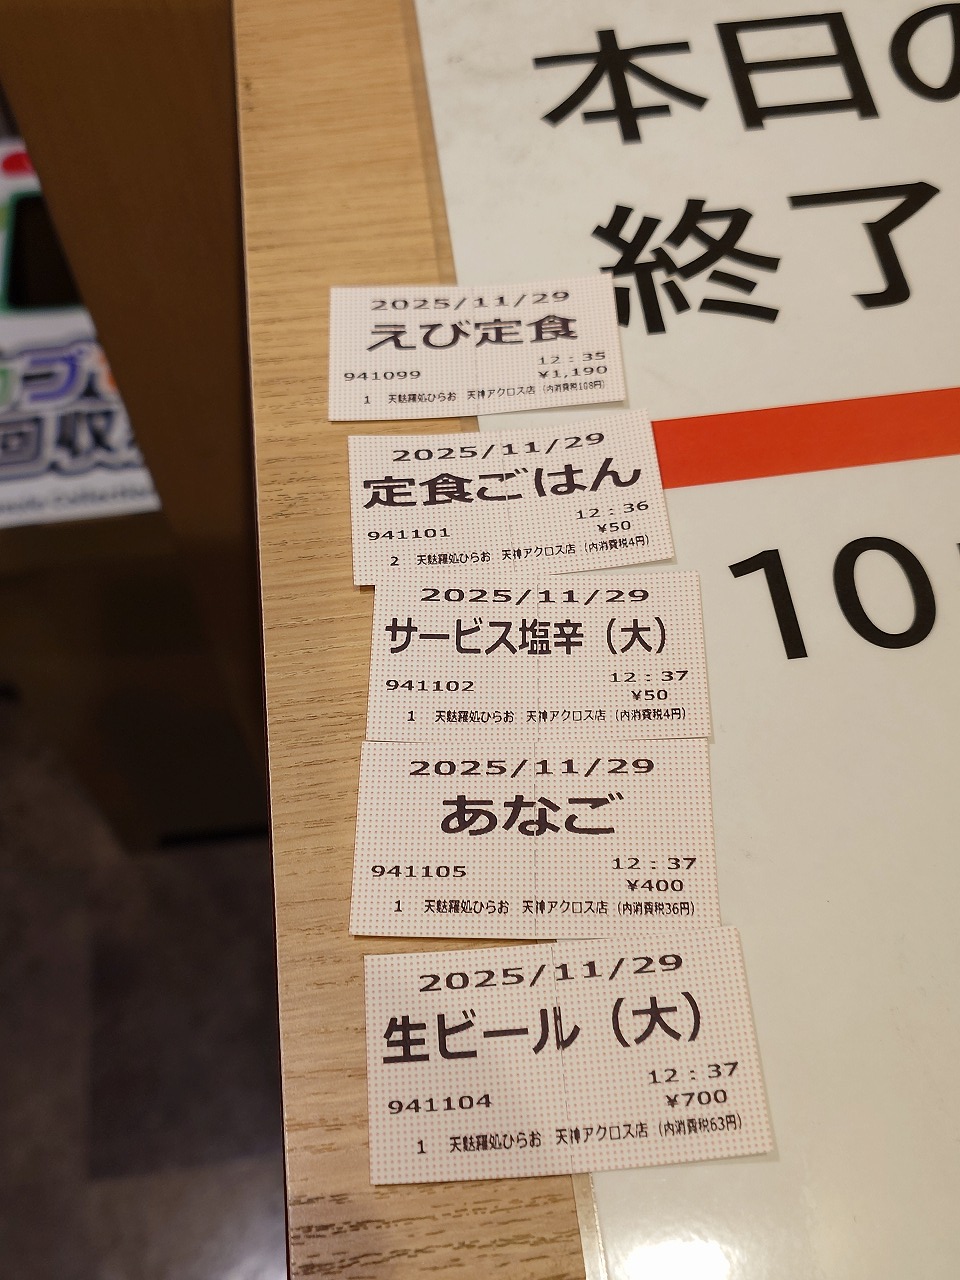 本日の
終了
10
2025/11/29
えび定食
12:35
941099
¥1,190
1 天麩羅処ひらお 天神アクロス店 (内消費税108円)
2025/11/29
定食ごはん
12:36
941101
¥50
2 天麩羅処ひらお 天神アクロス店 (内消費税4円)
2025/11/29
サービス塩辛(大)
12:37
941102
¥50
1 天麩羅処ひらお 天神アクロス店 (内消費税4円)
2025/11/29
あなご
12:37
941105
¥400
1 天麩羅処ひらお 天神アクロス店 (内消費税36円)
2025/11/29
生ビール(大)
12:37
941104
¥700
1 天麩羅処ひらお 天神アクロス店 (内消費税63円)
回収